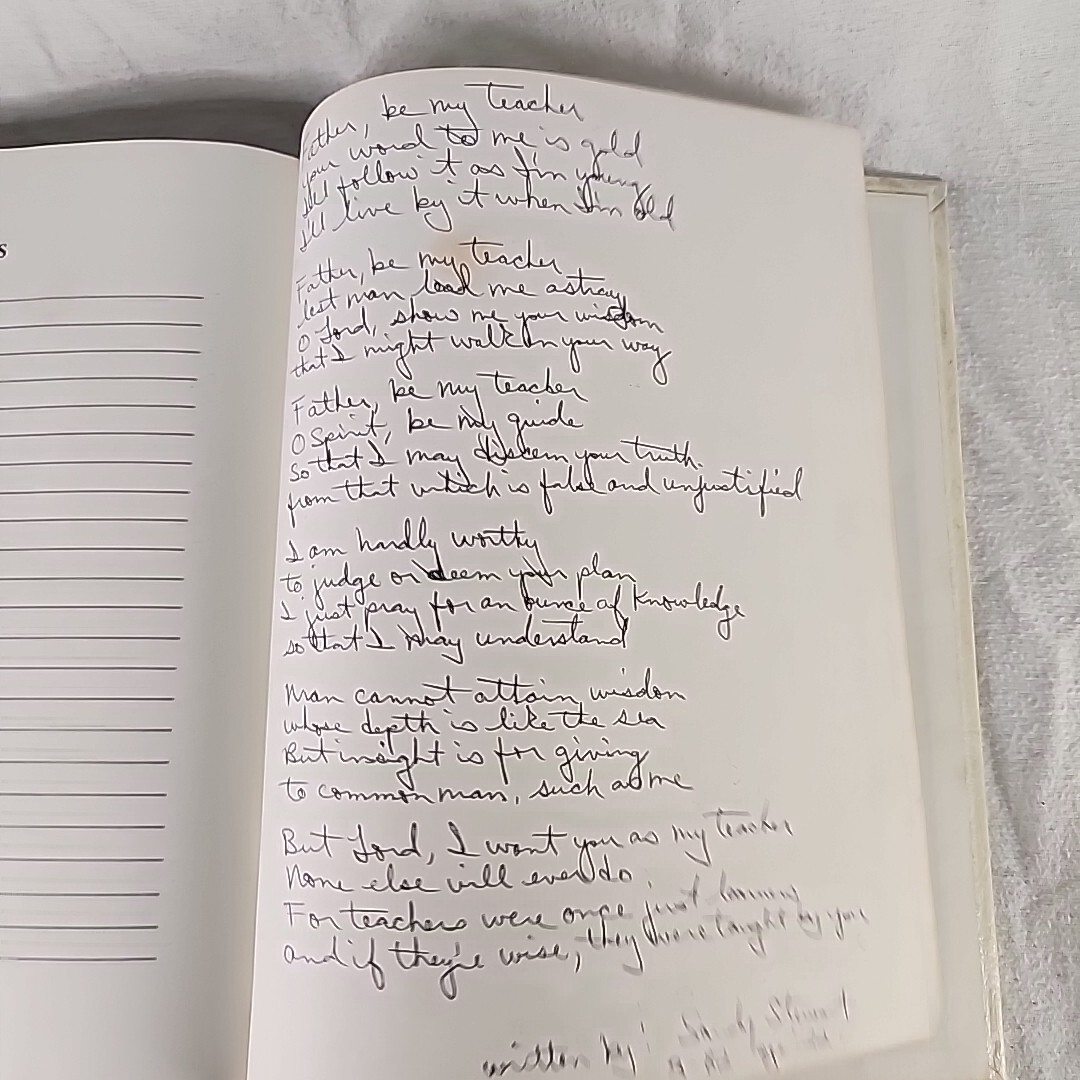 s
Father, be my teacher
your word to me is gold
I'll follow it as I'm young
I'll live by it when I'm old
Father, be my teacher
lest man lead me astray
O Lord, show me your wisdom
that I might walk in your way
Father, be my teacher
O Spirit, be my guide
So that I may discern your truth
from that which is false and unjustified
I am hardly worthy
to judge or deem your plan
I just pray for an ounce of knowledge
so that I may understand
Man cannot attain wisdom
whose depth is like the sea
But insight is for giving
to common man, such as me
But Lord, I want you as my teacher
None else will ever do
For teachers were once just learning
and if they're wise, they were taught by you
written by: